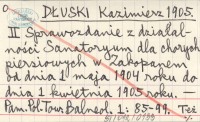 DŁUSKI Kazimierz 1905.
II Sprawozdanie z działal-
ności Sanatoryum dla chorych
piersiowych w Zakopanem
od dnia 1 maja 1904 roku do
dnia 1 kwietnia 1905 roku. —
Pam. Pol. Tow. Balneol. 1: 85-99. Też